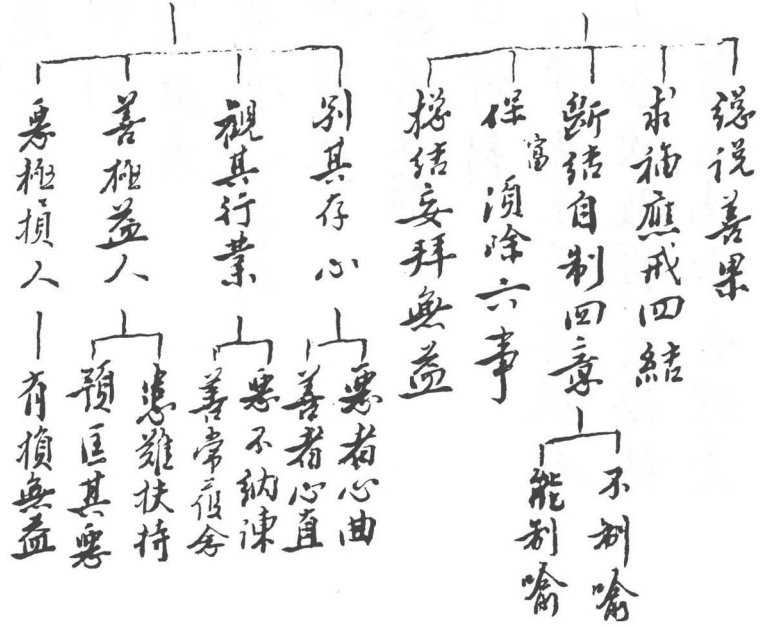 總說善果
求福應戒四結
斷結自制四意
不制喻
能制喻
保富須除六事
總結妄拜無益
別其存心
惡者心曲
善者心直
觀其行業
惡不納諫
善常
善極益人
患難扶持
預匡其惡
惡極損人
有損無益